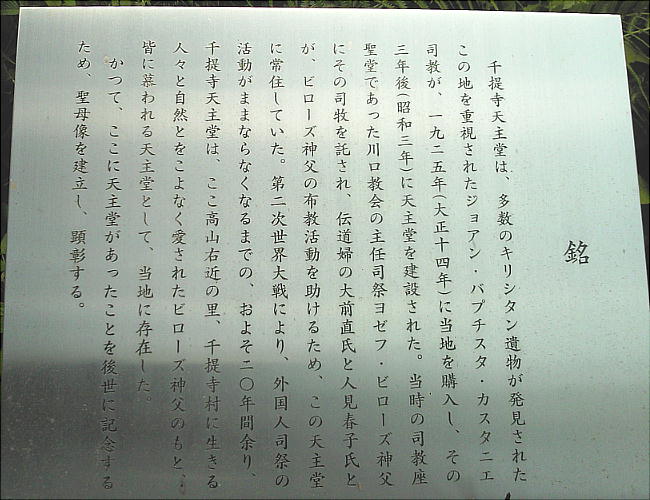 銘
千提寺天主堂は、多数のキリシタン遺物が発見された
この地を重視されたジョアン・バプチスタ・カスタニエ
司教が、一九二五年(大正十四年)に当地を購入し、その
三年後(昭和三年)に天主堂を建設された。当時の司教座
聖堂であった川口教会の主任司祭ヨゼフ・ビローズ神父
にその司牧を託され、伝道婦の大前直氏と人見春子氏と
が、ビローズ神父の布教活動を助けるため、この天主堂
に常住していた。第二次世界大戦により、外国人司祭の
活動がままならなくなるまでの、およそ二〇年間余り、
千提寺天主堂は、ここ高山右近の里、千提寺村に生きる
人々と自然とをこよなく愛されたビローズ神父のもと、
皆に慕われる天主堂として、当地に存在した。
かつて、ここに天主堂があったことを後世に記念する
ため、聖母像を建立し、顕彰する。